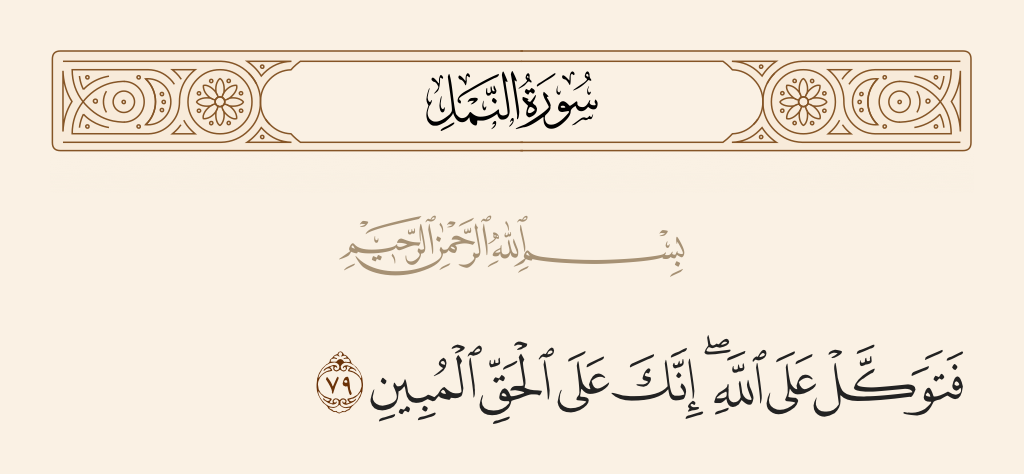 سُورَةُ النَّمْلِ
بِسْمِ ٱللَّهِ ٱلرَّحْمَٰنِ ٱلرَّحِيمِ
فَتَوَكَّلْ عَلَى ٱللَّهِ ۖ إِنَّكَ عَلَى ٱلْحَقِّ ٱلْمُبِينِ ٧٩